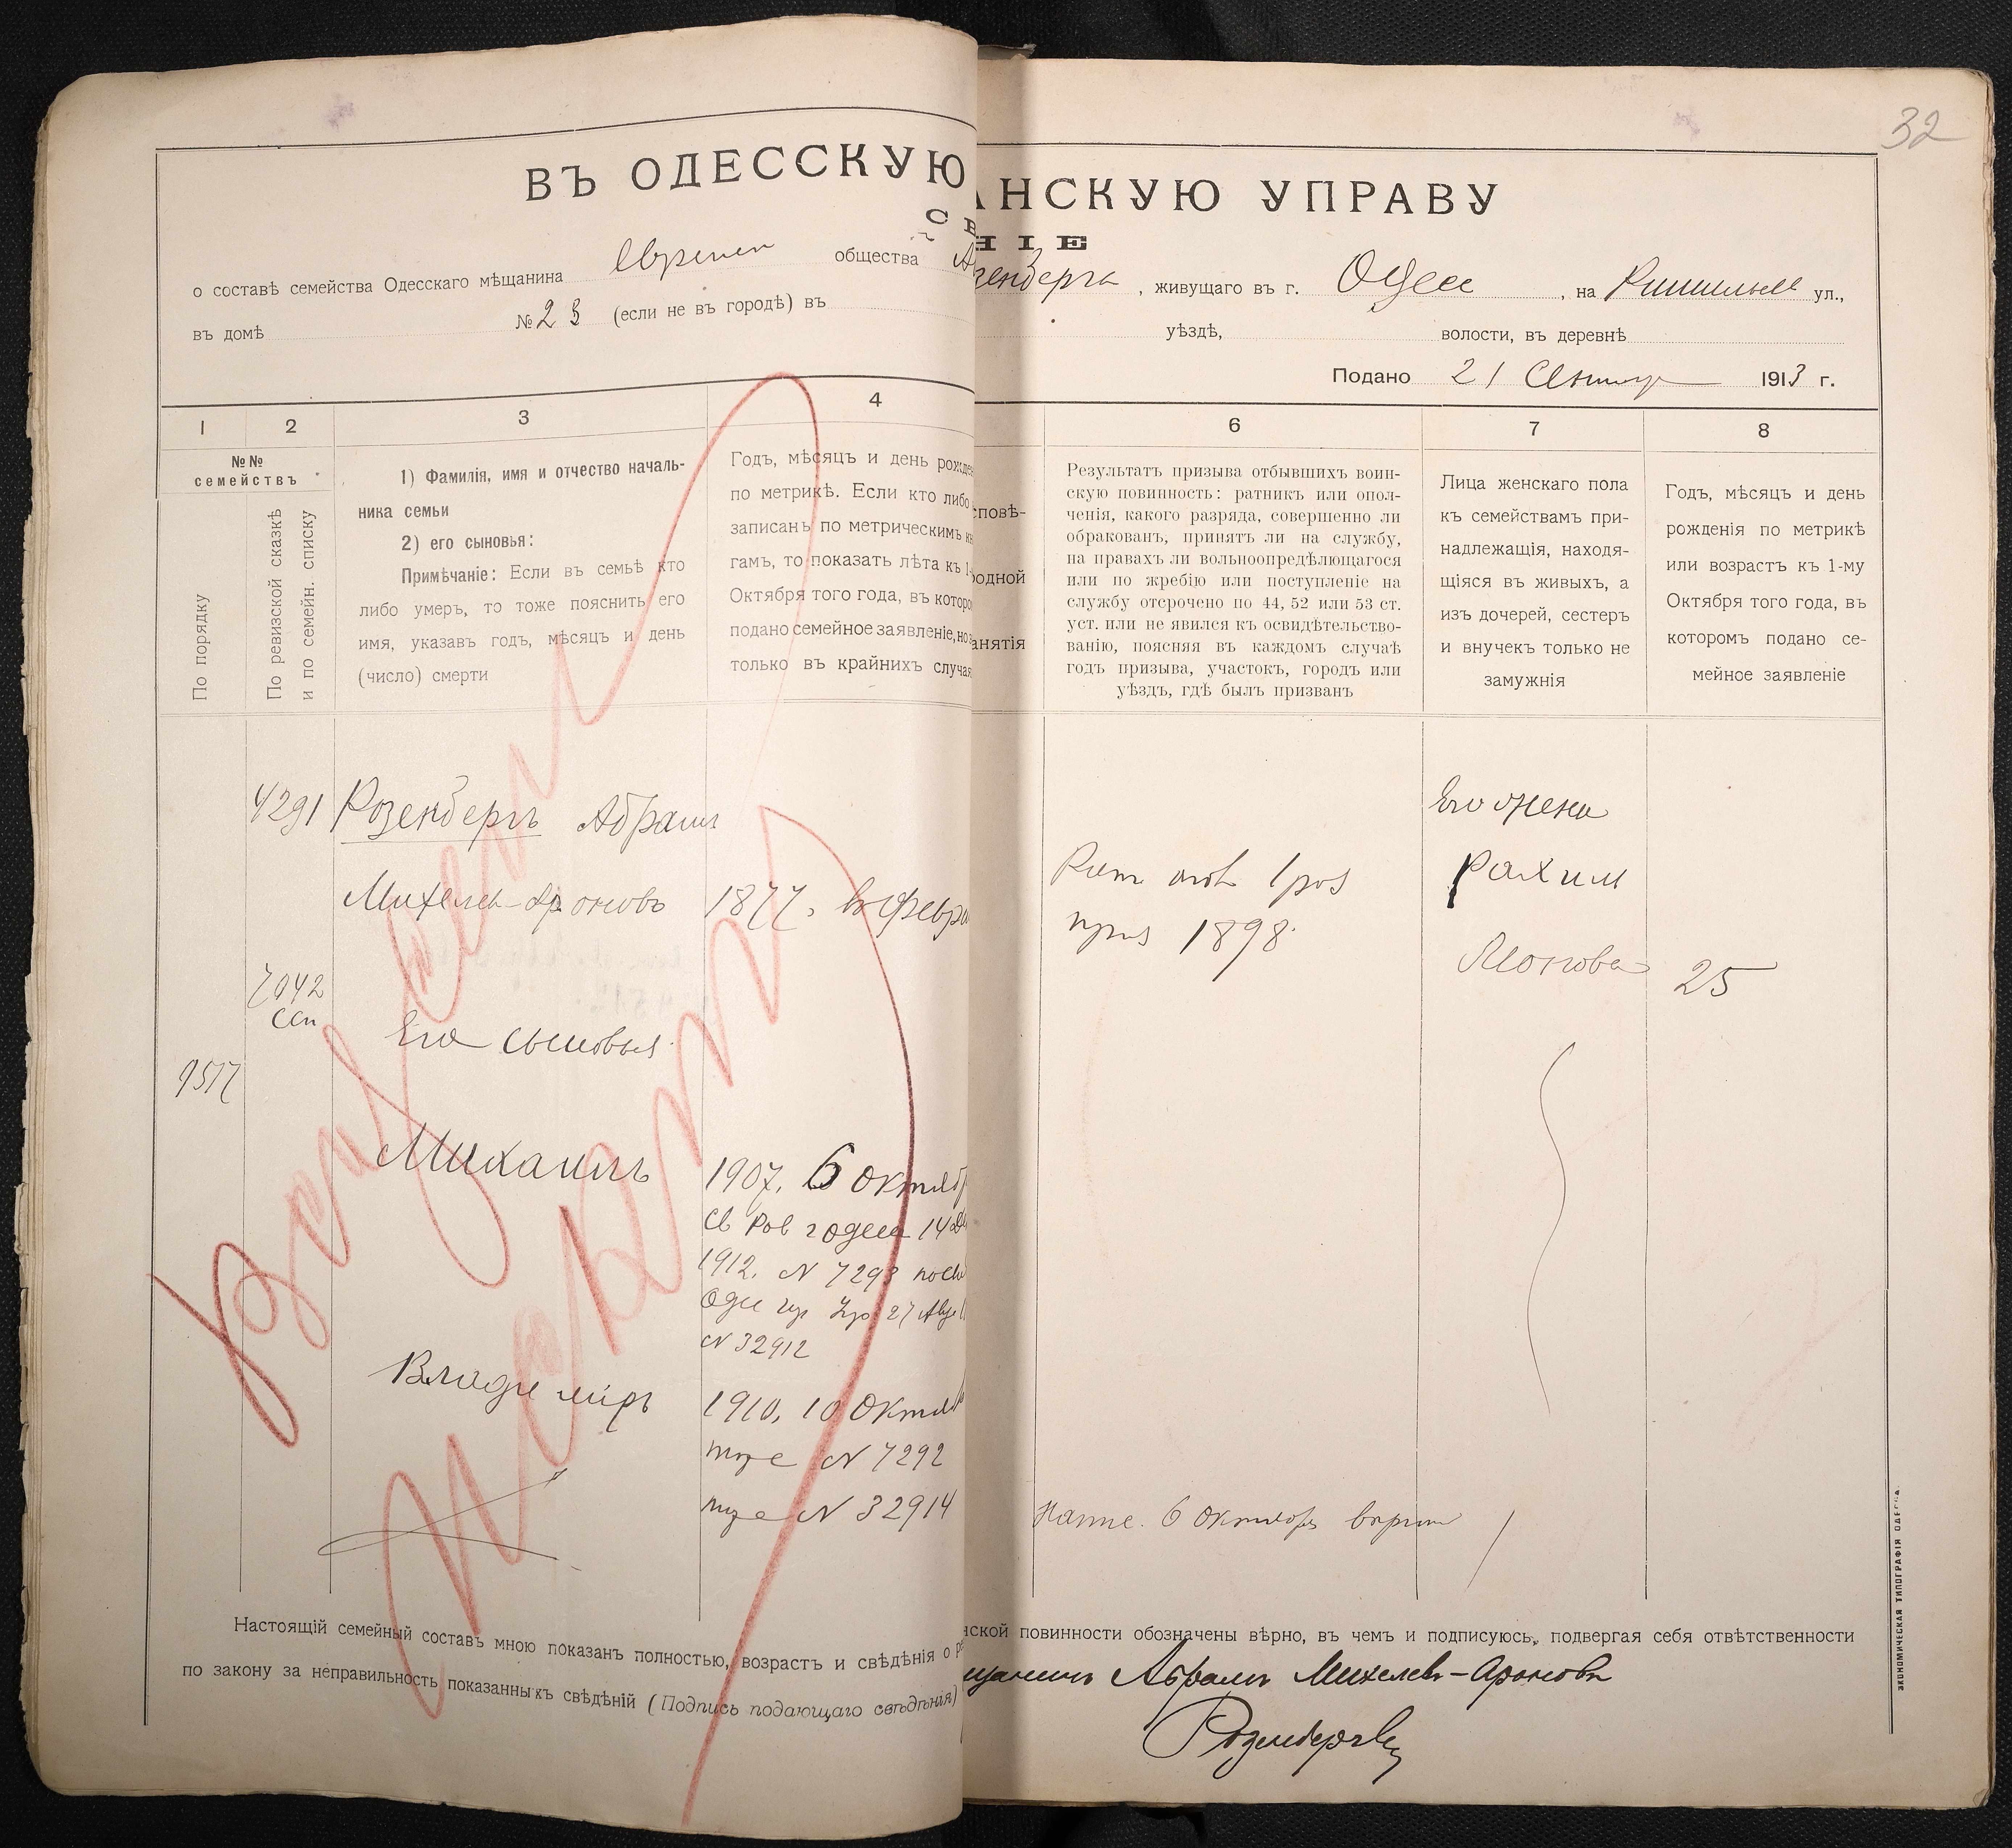 32
ВЪ ОДЕССКУЮ АНСКУЮ УПРАВУ
СВ НІЕ
о составѣ семейства Одесскаго мѣщанина Евреен общества А зенберга, живущаго въ г. Одесс, на Ришельев ул.,
въ домѣ № 23 (если не въ городѣ) въ уѣздѣ, волости, въ деревнѣ
Подано 21 Сентяр 1913 г.
1 2 3 4 6 7 8
№№
семействъ
По порядку
По ревизской сказкѣ
и по семейн. списку
1) Фамилія, имя и отчество началь-
ника семьи
2) его сыновья:
Примѣчаніе: Если въ семьѣ кто
либо умеръ, то тоже пояснить его
имя, указавъ годъ, мѣсяцъ и день
(число) смерти
Годъ, мѣсяцъ и день рожде
по метрикѣ. Если кто либо
записанъ по метрическимъ к
гамъ, то показать лѣта къ 1-
Октября того года, въ которо
подано семейное заявленіе, но
только въ крайнихъ случая
сповѣ-
одной
анятія
Результатъ призыва отбывшихъ воин-
скую повинность: ратникъ или опол-
ченія, какого разряда, совершенно ли
обракованъ, принятъ ли на службу,
на правахъ ли вольноопредѣляющагося
или по жребію или поступленіе на
службу отсрочено по 44, 52 или 53 ст.
уст. или не явился къ освидѣтельство-
ванію, поясняя въ каждомъ случаѣ
годъ призыва, участокъ, городъ или
уѣздъ, гдѣ былъ призванъ
Лица женскаго пола
къ семействамъ при-
надлежащія, находя-
щіяся въ живыхъ, а
изъ дочерей, сестеръ
и внучекъ только не
замужнія
Годъ, мѣсяцъ и день
рожденія по метрикѣ
или возрастъ къ 1-му
Октября того года, въ
которомъ подано се-
мейное заявленіе
4291 Розенбергъ Абрамъ
Михелев-Ароновъ 1877, февра
Рат опол 1 раз
приз 1898
Его жена
Рахил
25
7042
ссп
Его сыновья
9517
Михаилъ 1907, 6 Октяб
1912. N 7293
27 Авг
N 32912
Владиміръ 1910, 10 Октяб
тоже N 7292
тоже N 32914
6 Октября
Настоящій семейный составъ мною показанъ полностью, возрастъ и свѣдѣнія о нской повинности обозначены вѣрно, въ чемъ и подписуюсь, подвергая себя отвѣтственности
по закону за неправильность показанныхъ свѣдѣній (Подпись подающаго свѣдѣнія) щанинъ Абрамъ Михелевъ-Ароновъ
Розенбергъ
ЭКОНОМИЧЕСКАЯ ТИПОГРАФІЯ ОДЕССА.